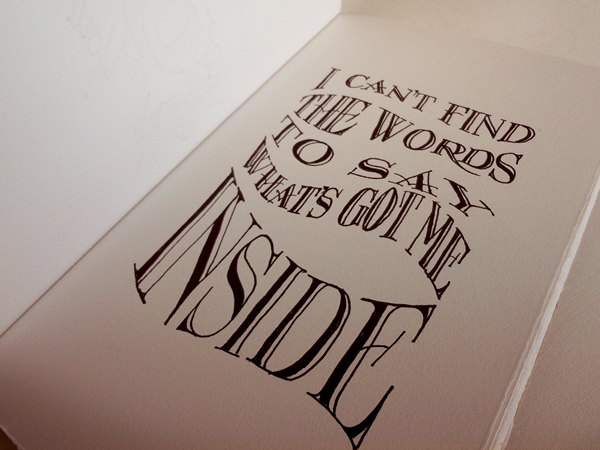 I CAN'T FIND
THE WORDS
TO SAY
WHAT'S GOT ME
INSIDE